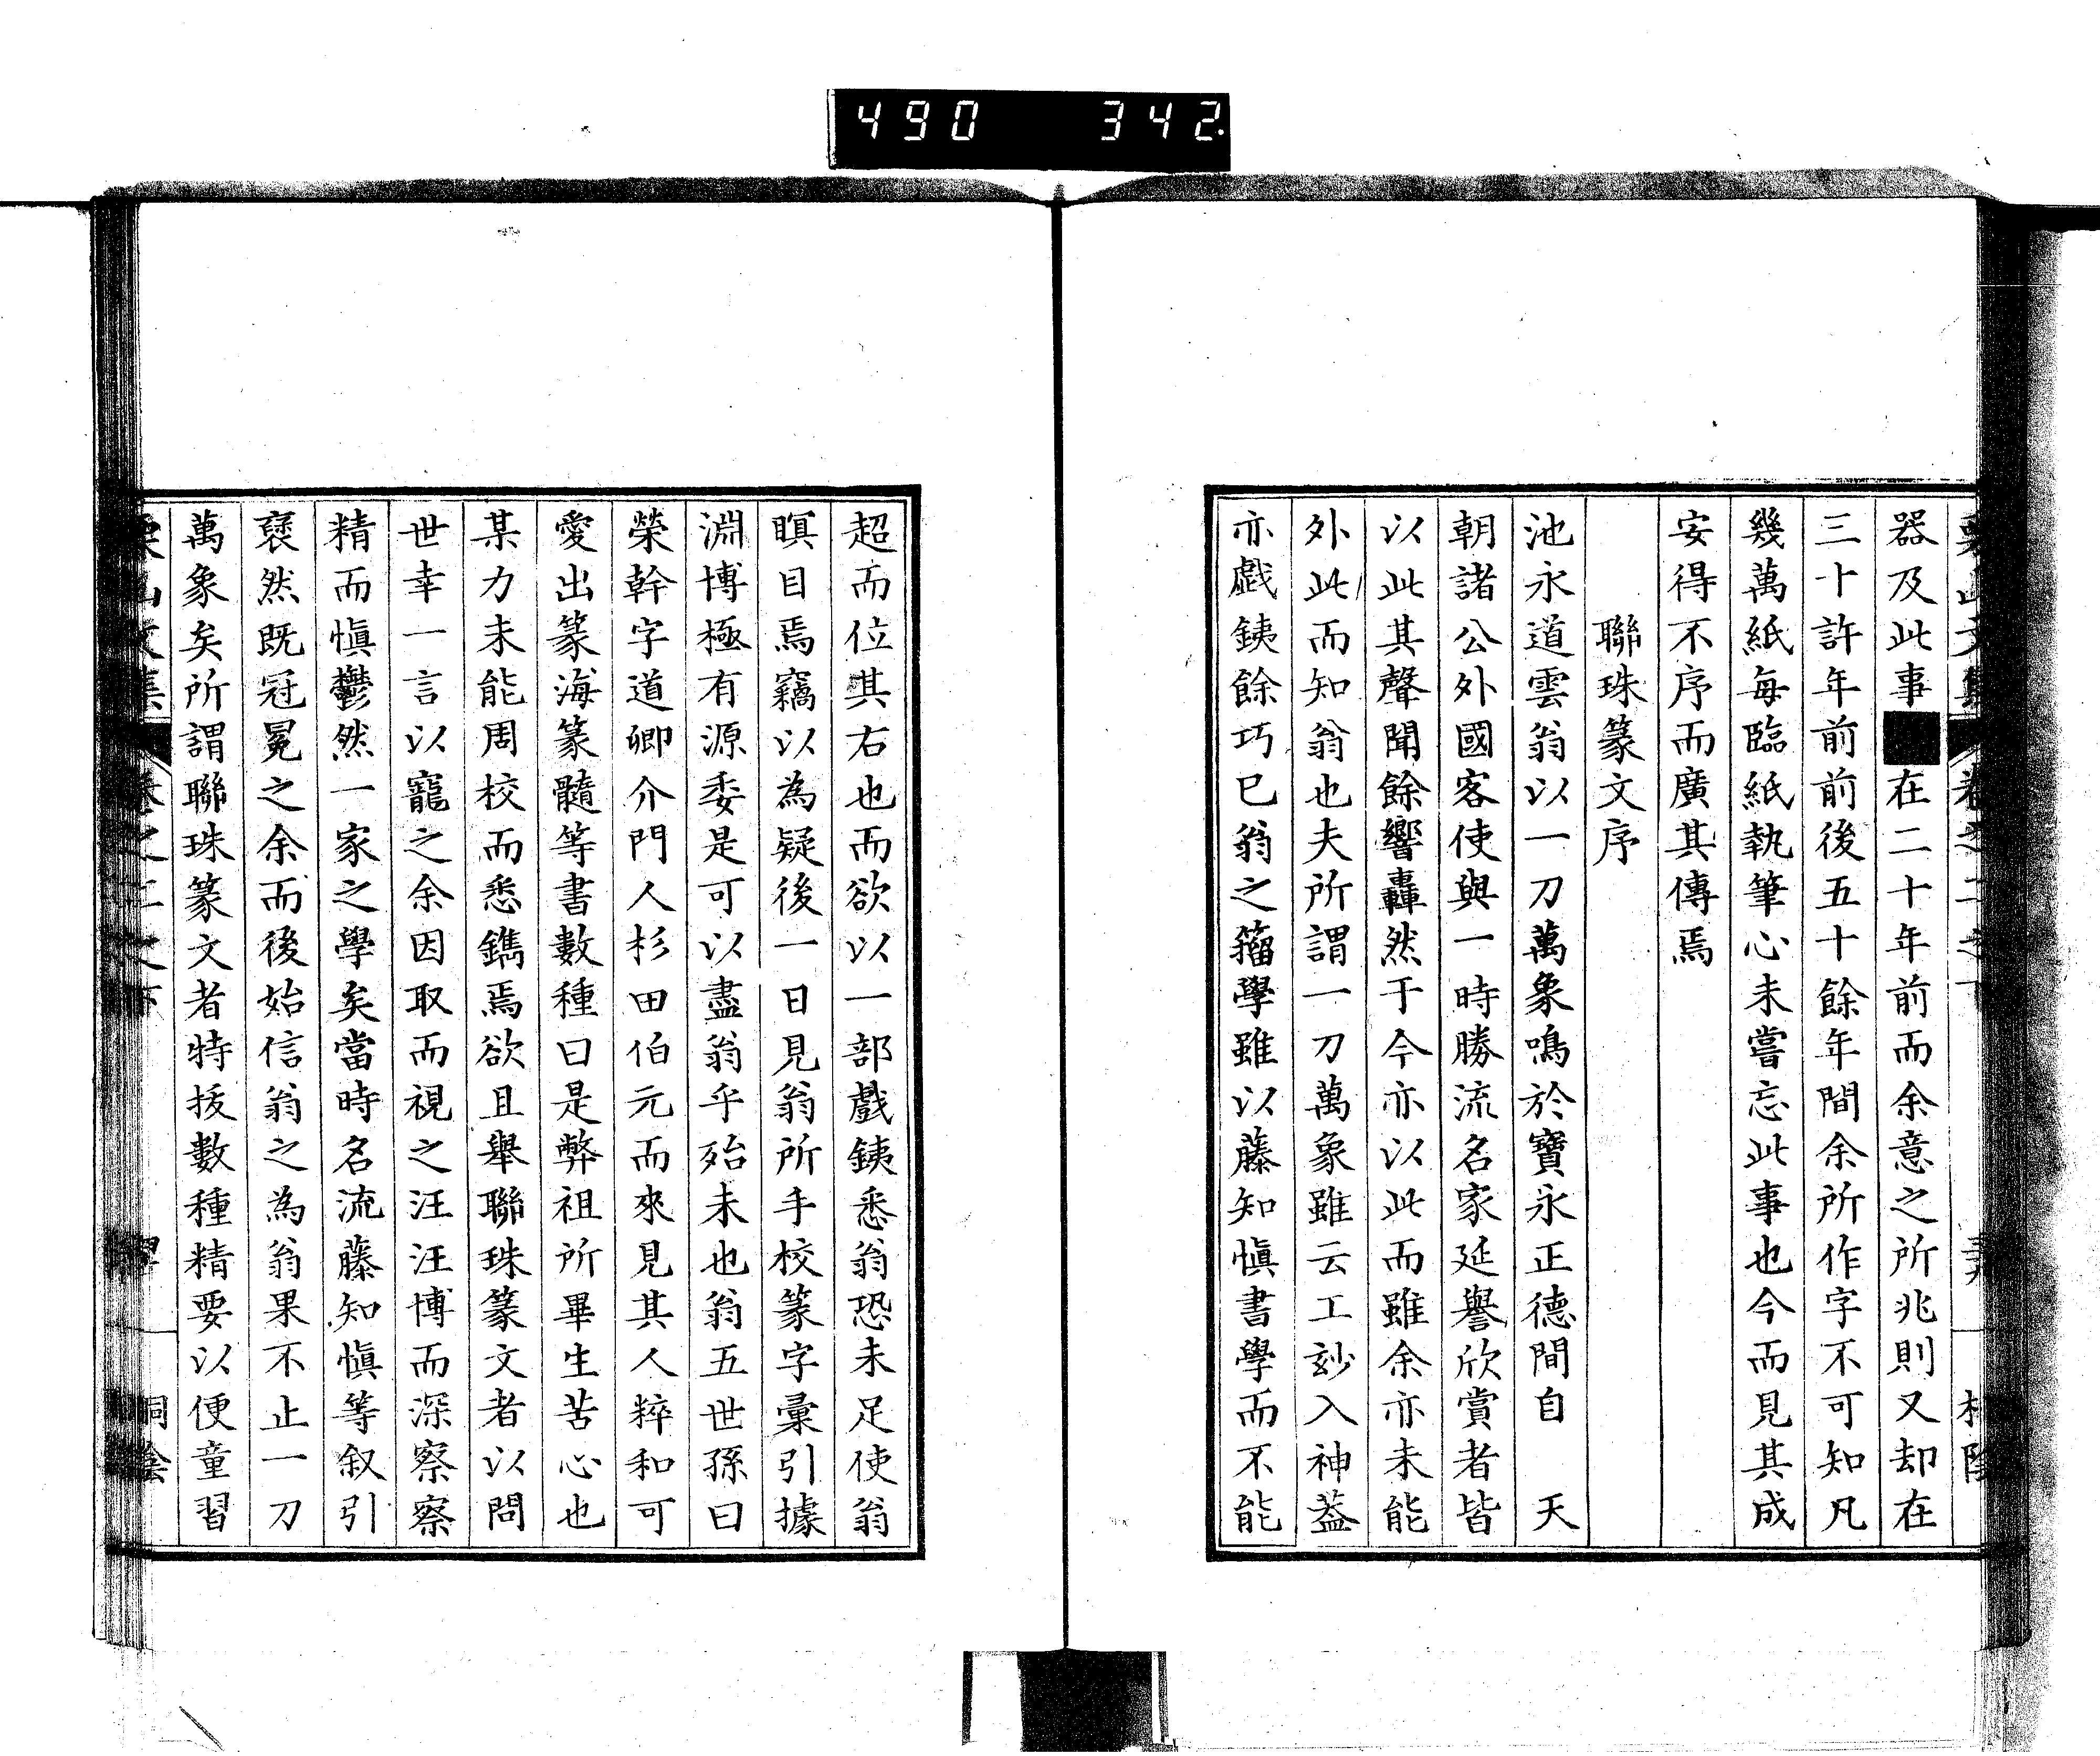 490 342
器及此事■在二十年前而余意之所兆則又却在
三十許年前前後五十餘年間余所作字不可知凡
幾萬紙每臨紙執筆心未嘗忘此事也今而見其成
安得不序而廣其傳焉
聯珠篆文序
池永道雲翁以一刀萬象鳴於寶永正德間自 天
朝諸公外國客使與一時勝流名家延譽欣賞者皆
以此其聲聞餘響轟然于今亦以此而雖余亦未能
外此而知翁也夫所謂一刀萬象雖云工玅入神葢
亦戯銕餘巧已翁之籀學雖以藤知愼書學而不能
超而位其右也而欲以一部戲銕悉翁恐未足使翁
瞑目焉竊以為疑後一日見翁所手校篆字彙引據
淵博極有源委是可以盡翁乎殆未也翁五世孫曰
榮幹字道卿介門人杉田伯元而來見其人粹和可
愛出篆海篆髓等書數種曰是弊祖所畢生苦心也
某力未能周校而悉鐫焉欲且舉聯珠篆文者以問
世幸一言以寵之余因取而視之汪汪博而深察察
精而愼鬱然一家之學矣當時名流藤知愼等叙引
襃然既冠冕之余而後始信翁之為翁果不止一刀
萬象矣所謂聯珠篆文者特拔數種精要以便童習